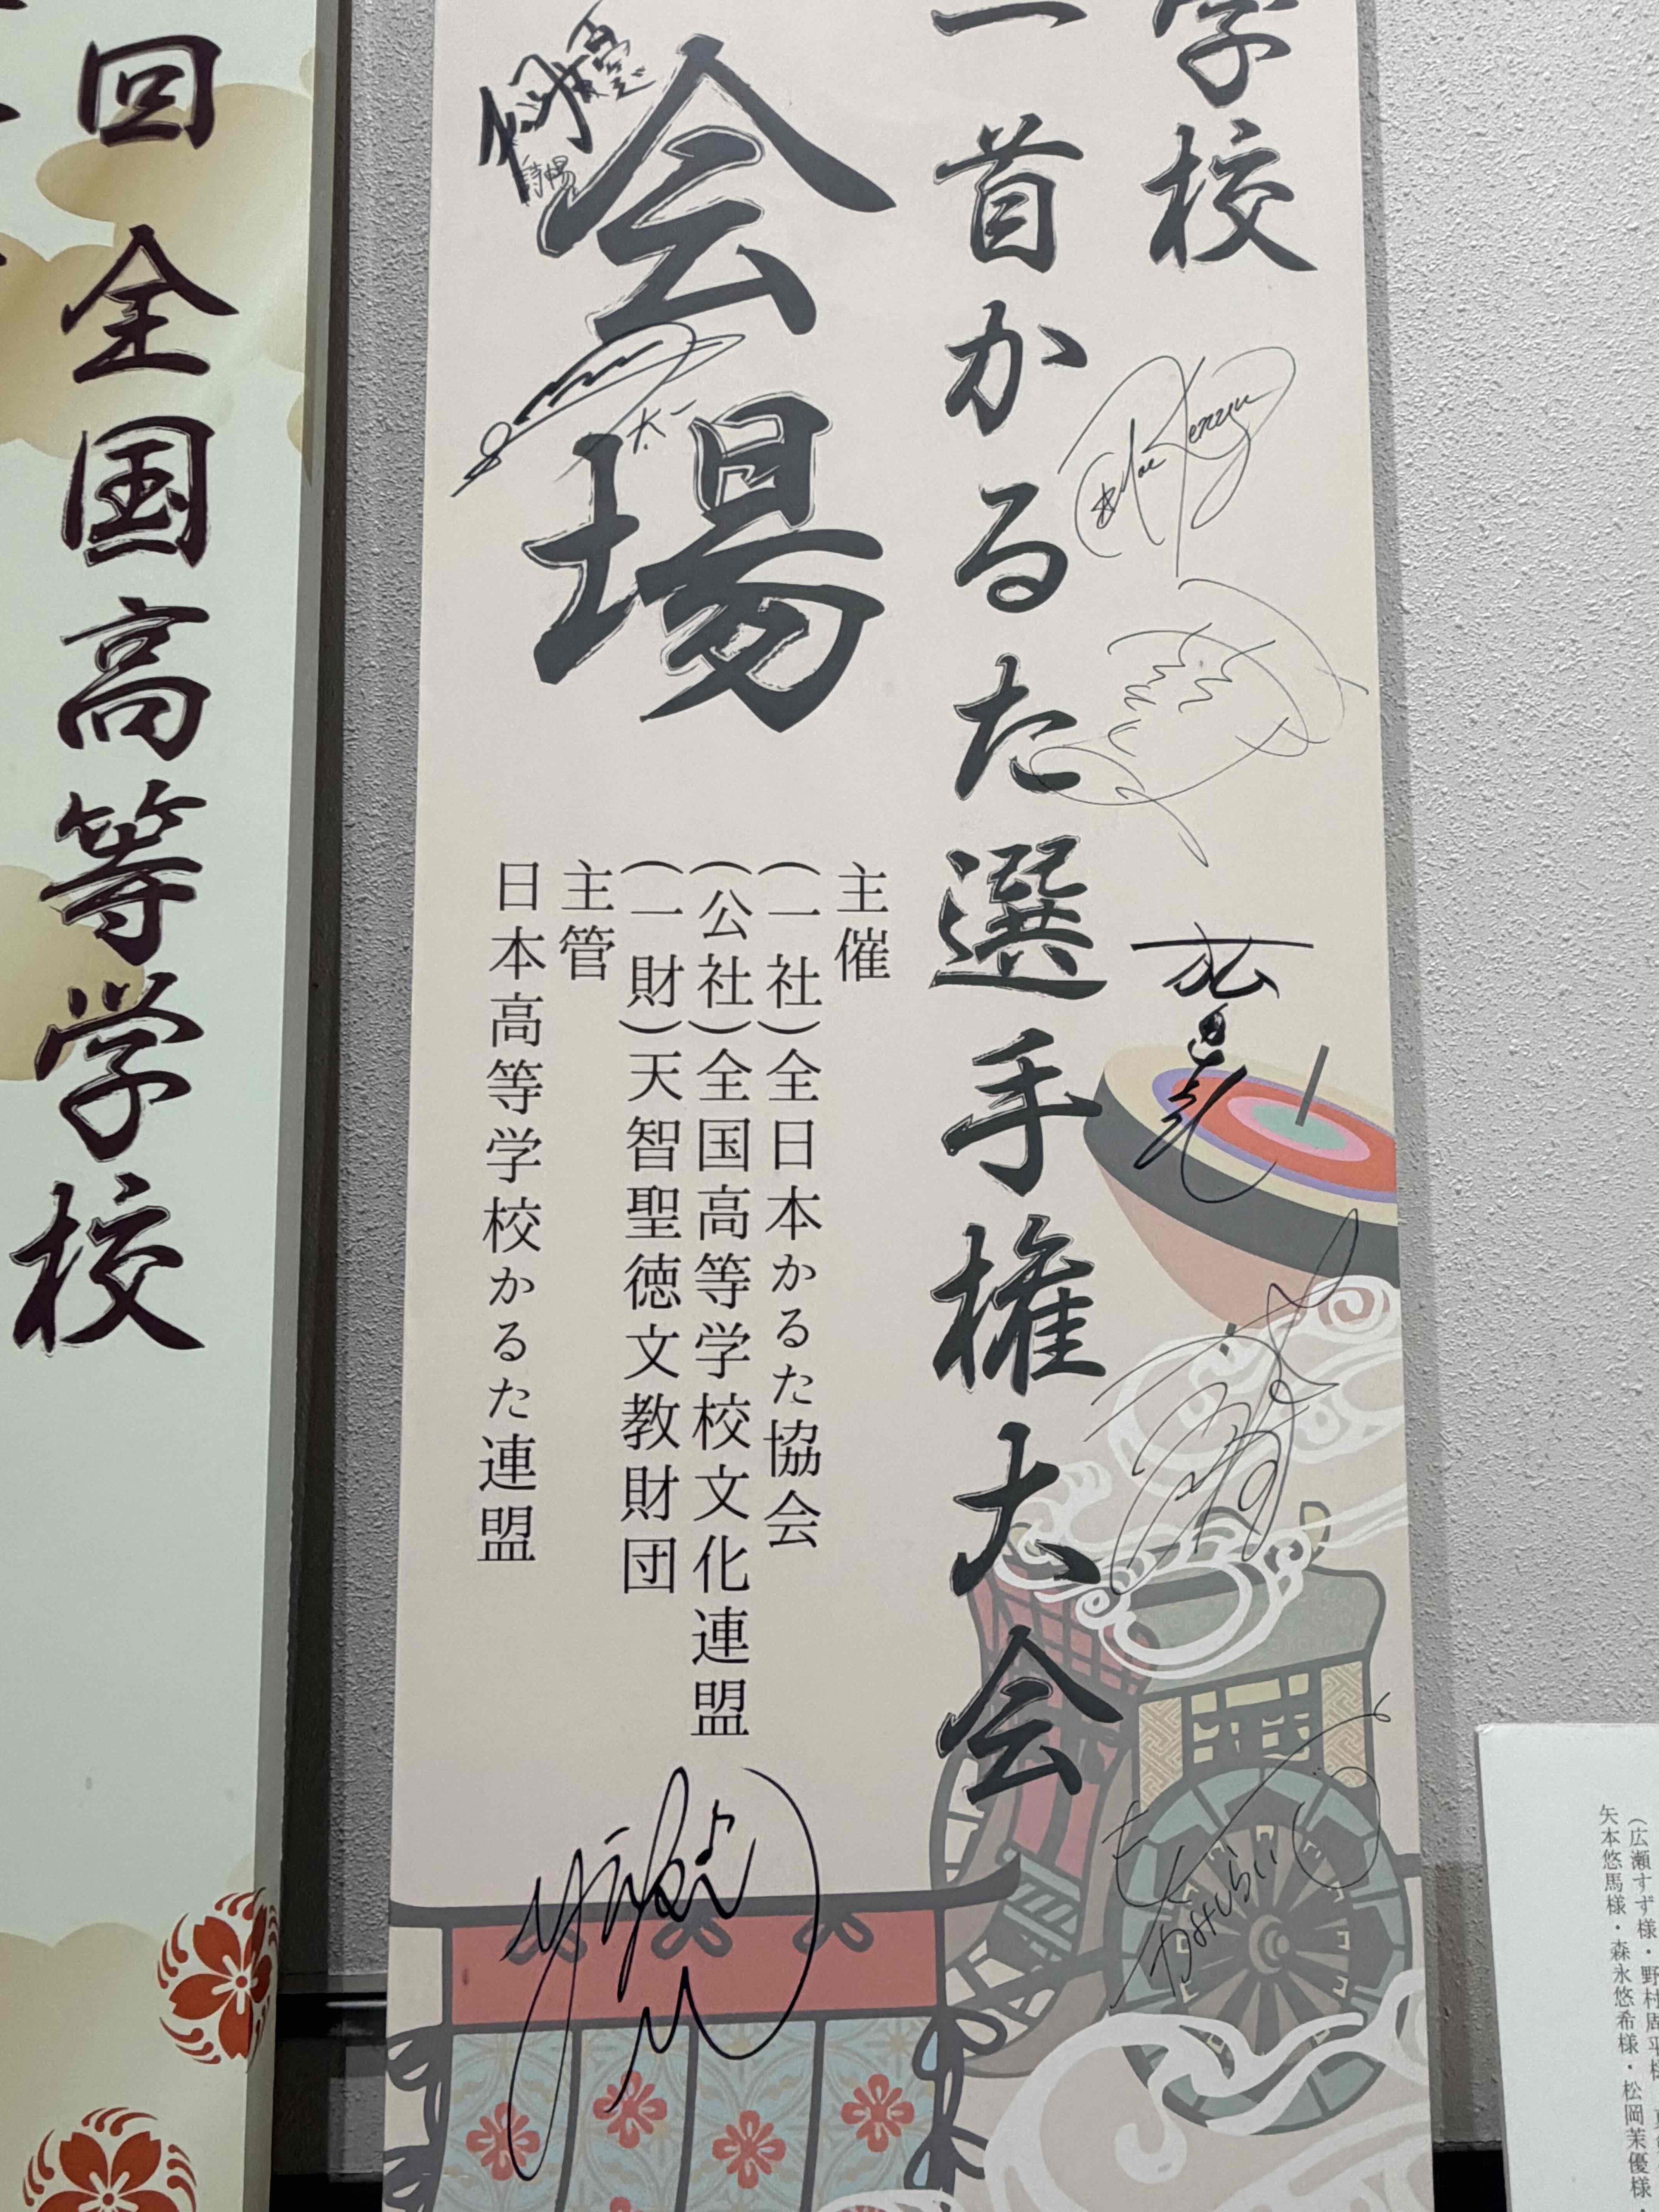 学校
一首かるた選手権大会
会場
主催
(一社)全日本かるた協会
(公社)全国高等学校文化連盟
(一財)天智聖徳文教財団
主管
日本高等学校かるた連盟
太一
回全国高等学校
(広瀬すず様・野村周平様
矢本悠馬様・森永悠希様・松岡茉優様・